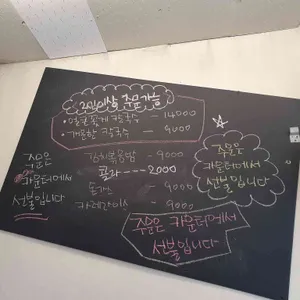 2인이상 주문가능
얼큰꽃게 칼국수 - 14000
개운한 칼국수 - 9000
김치볶음밥 - 9000
콜라 --- 2000
돈까스 9000
카레라이스 - 9000
주문은
카운터에서
선불입니다
주문은
카운터에서
선불입니다
주문은 카운터에서
선불입니다